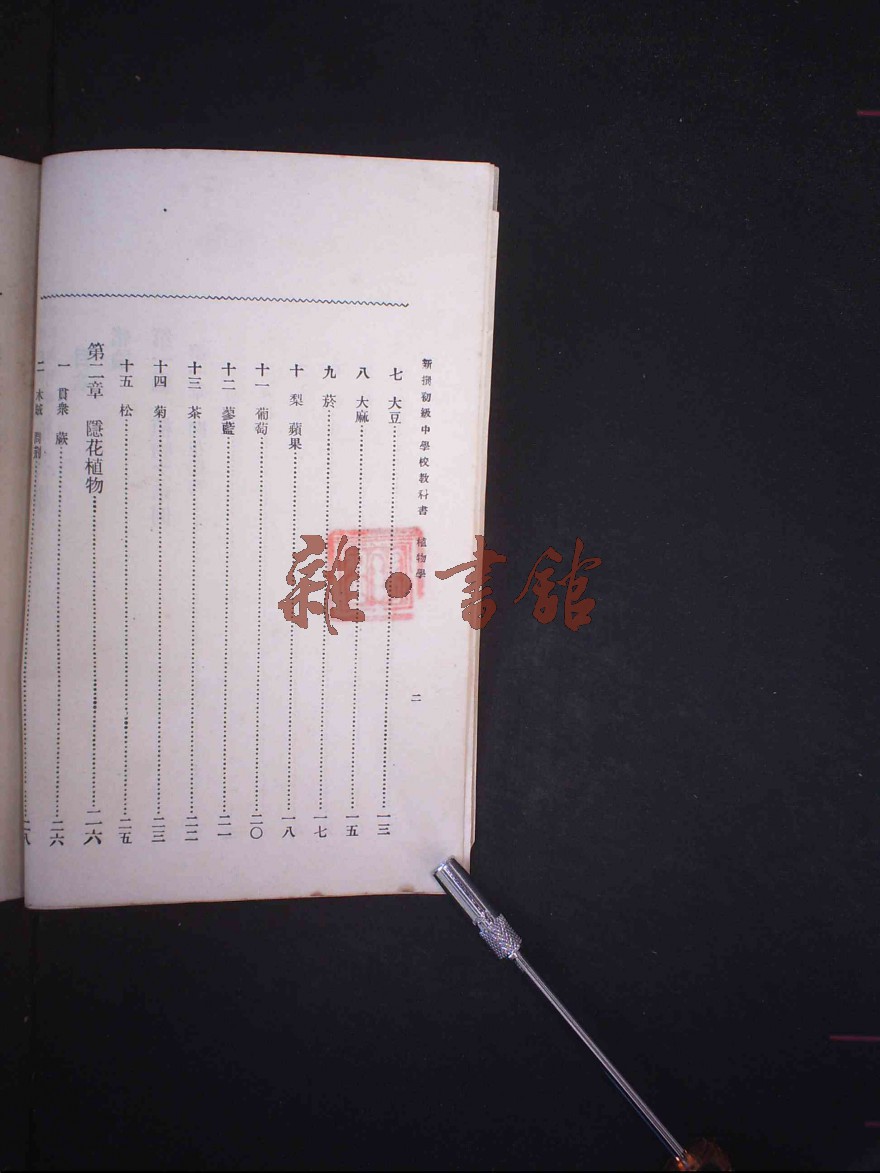 新撰初級中學校教科書 植物學
二
七 大豆 一三
八 大麻 一五
九 菸 一七
十 梨 蘋果 一八
十一 葡萄 二〇
十二 蓼藍 二一
十三 茶 二二
十四 菊 二三
十五 松 二五
第二章 隱花植物 二六
一 貫衆 蕨 二六
二 木賊 二八
雜·書館